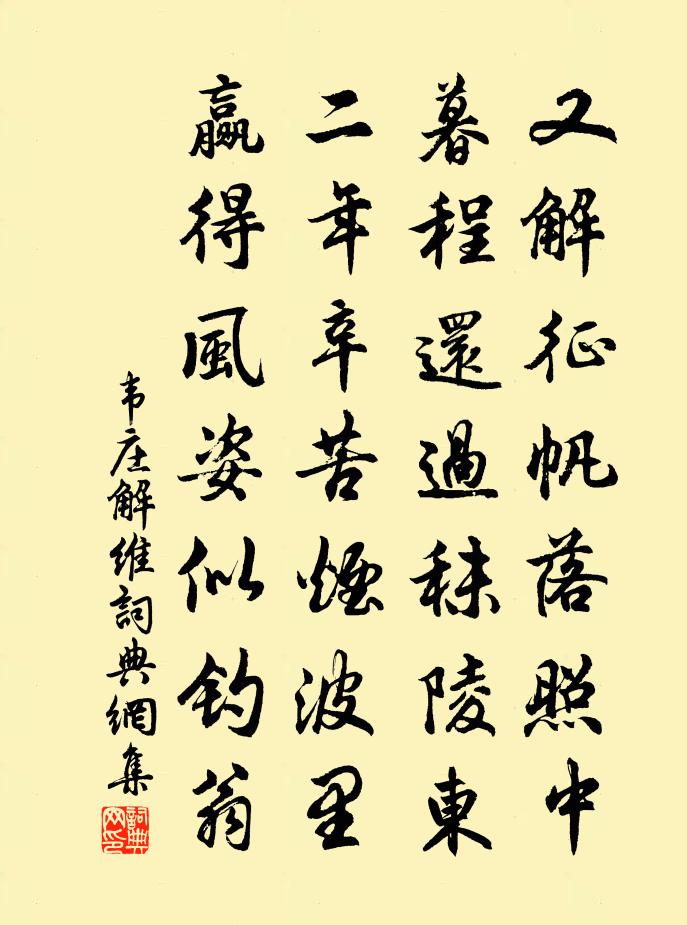 又解征帆落照中
暮程還過秣陵東
二年辛苦煙波里
赢得風姿似钓翁
韦庄解维詞典網集
詞典网印